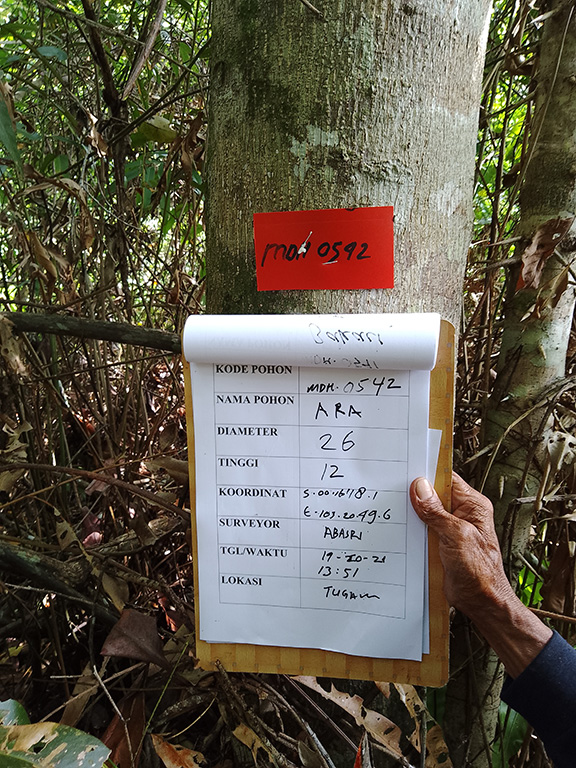 MDH 0592
Bakari
KODE POHON MDH. 0542
NAMA POHON ARA
DIAMETER 26
TINGGI 12
KOORDINAT S.00.1678.1
E.103.20.49.6
SURVEYOR ABASRI
TGL/WAKTU 19-10-21
13:51
LOKASI